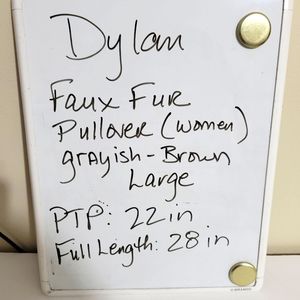 Dylan
Faux Fur
Pullover (women)
grayish-Brown
Large
PTP: 22in
Full Length: 28in